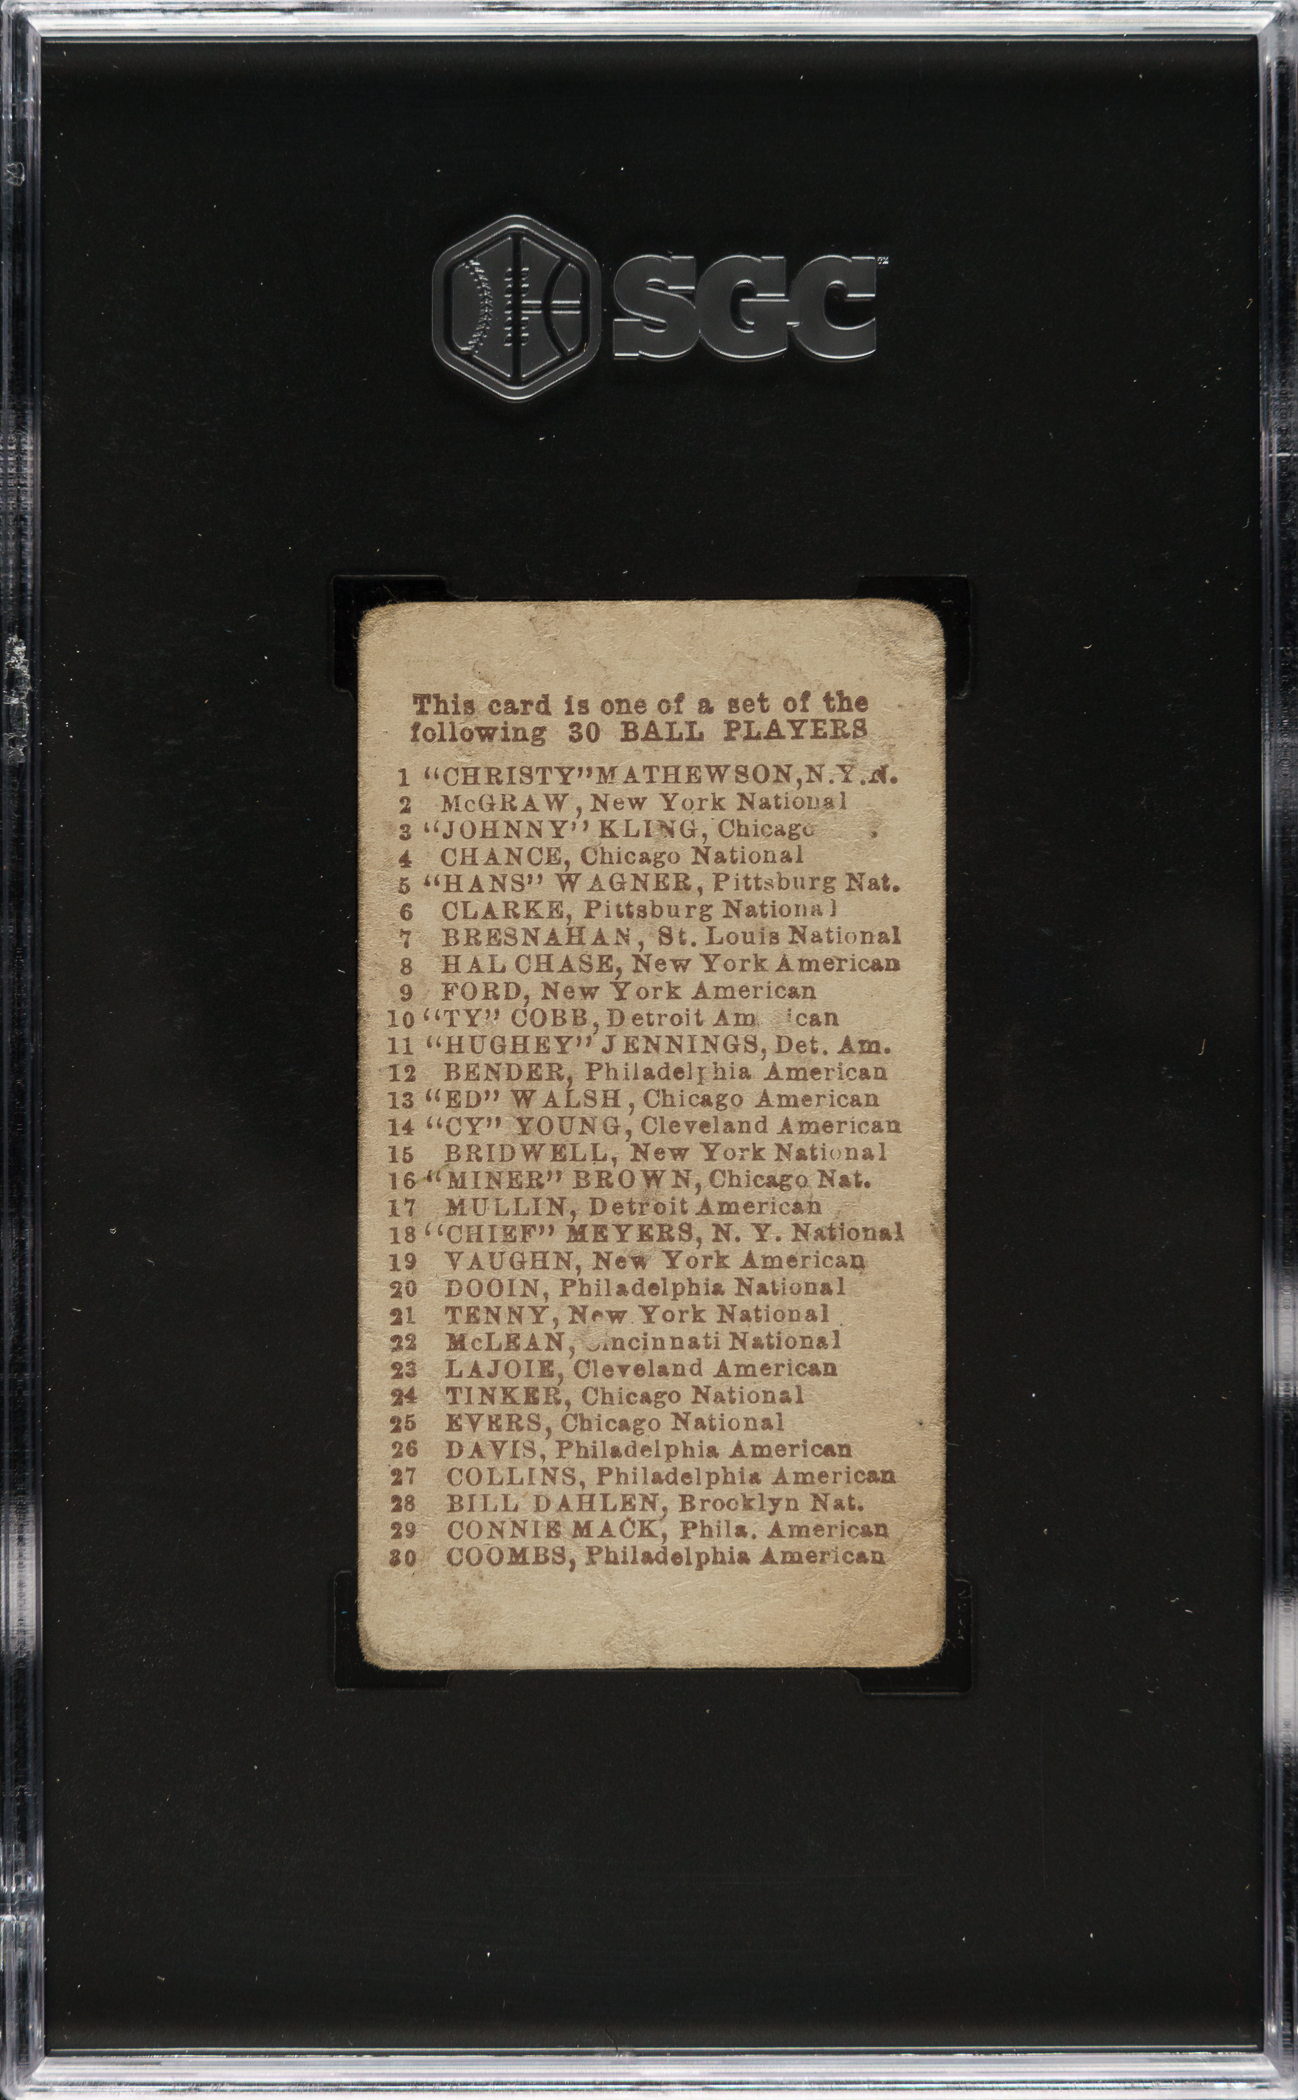 SGC
This card is one of a set of the
following 30 BALL PLAYERS
1 "CHRISTY" MATHEWSON, N.Y.N.
2 McGRAW, New York National
3 "JOHNNY" KLING, Chicago
4 CHANCE, Chicago National
5 "HANS" WAGNER, Pittsburg Nat.
6 CLARKE, Pittsburg National
7 BRESNAHAN, St. Louis National
8 HAL CHASE, New York American
9 FORD, New York American
10 "TY" COBB, Detroit American
11 "HUGHEY" JENNINGS, Det. Am.
12 BENDER, Philadelphia American
13 "ED" WALSH, Chicago American
14 "CY" YOUNG, Cleveland American
15 BRIDWELL, New York National
16 "MINER" BROWN, Chicago Nat.
17 MULLIN, Detroit American
18 "CHIEF" MEYERS, N. Y. National
19 VAUGHN, New York American
20 DOOIN, Philadelphia National
21 TENNY, New York National
22 McLEAN, Cincinnati National
23 LAJOIE, Cleveland American
24 TINKER, Chicago National
25 EVERS, Chicago National
26 DAVIS, Philadelphia American
27 COLLINS, Philadelphia American
28 BILL DAHLEN, Brooklyn Nat.
29 CONNIE MACK, Phila. American
30 COOMBS, Philadelphia American